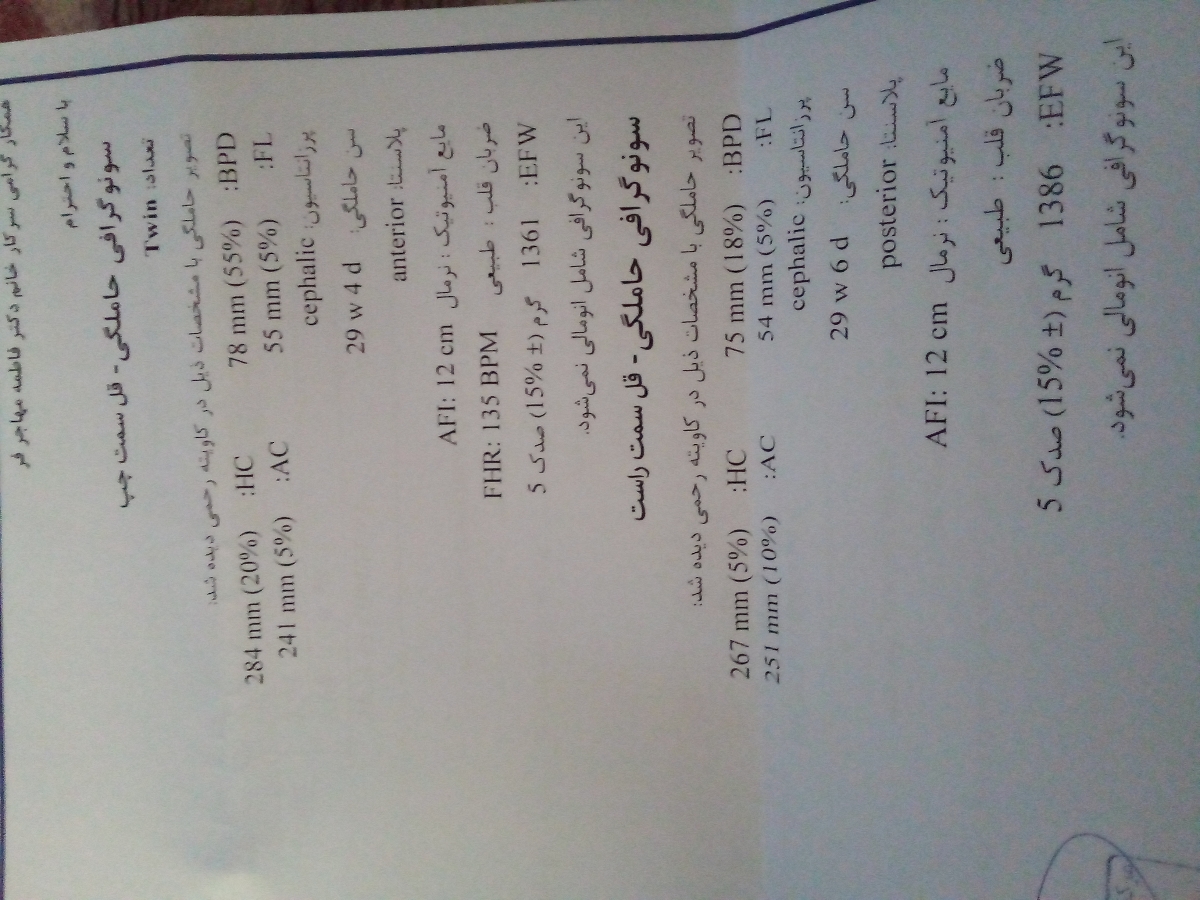 همکار گرامی سرکار خانم دکتر فاطمه مهاجر فر
با سلام و احترام
سونوگرافی حاملگی - قل سمت چپ
تعداد: Twin
تصویر حاملگی با مشخصات ذیل در کاویته رحمی دیده شد:
BPD: 78 mm (55%) HC: 284 mm (20%)
FL: 55 mm (5%) AC: 241 mm (5%)
پرزانتاسیون: cephalic
سن حاملگی: 29 w 4 d
پلاسنتا: anterior
مایع آمنیوتیک : نرمال AFI: 12 cm
ضربان قلب : طبیعی FHR: 135 BPM
EFW: 1361 گرم (± 15%) صدک 5
این سونوگرافی شامل انومالی نمی‌شود.
سونوگرافی حاملگی - قل سمت راست
تصویر حاملگی با مشخصات ذیل در کاویته رحمی دیده شد:
BPD: 75 mm (18%) HC: 267 mm (5%)
FL: 54 mm (5%) AC: 251 mm (10%)
پرزانتاسیون: cephalic
سن حاملگی: 29 w 6 d
پلاسنتا: posterior
مایع آمنیوتیک : نرمال AFI: 12 cm
ضربان قلب : طبیعی
EFW: 1386 گرم (± 15%) صدک 5
این سونوگرافی شامل انومالی نمی‌شود.